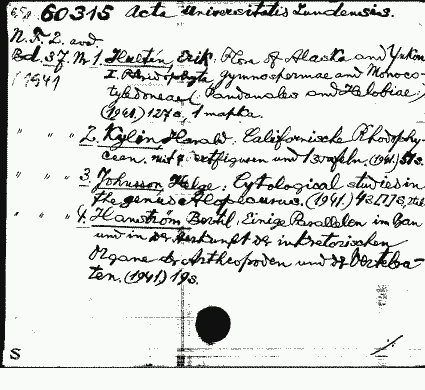 60315 Acta Universitatis Lundensis.
N.F. 2. avd.
Bd. 37. Nr 1. Hultén, Erik. Flora of Alaska and Yukon
(1941 I. Pteridophyta gymnospermae and Monoco-
tyledoneae (Pandanales and Helobiae).
(1941) 127 s., 1 mapka.
" " " 2. Kylin Harald. Californische Rhodophy-
ceen. mit 7 Textfiguren und 13 Tafeln. (1941) 51 s.
" " " 3. Johnsson, Helge. Cytological studies in
the genus Alopecurus. (1941) 43
" " " 4. Hanström Bertil. Einige Parallelen im Bau
und in der Herkunft der inkretorischen
Organe der Arthropoden und der Vertebra-
ten. (1941) 19 s.
S